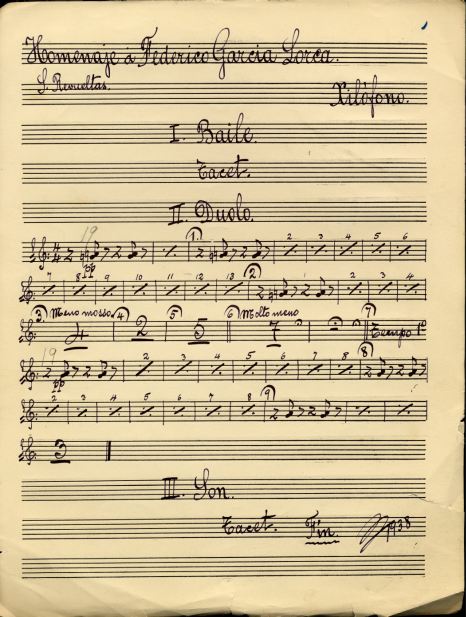 Homenaje a Federico Garcia Lorca.
S. Revueltas.
Xilófono.
I. Baile.
Tacet.
II. Duolo.
19 1. 2 3 4 5 6
pp
7 8 9 10 11 12 13 2 2 3 4
3 Meno mosso 4 5 6 Molto meno 7
4 2 5 7 Tempo 1º
19 2 3 4 5 6 7 8
pp
2 3 4 5 6 7 8 9
3
III. Son.
Tacet. Fin. 1938